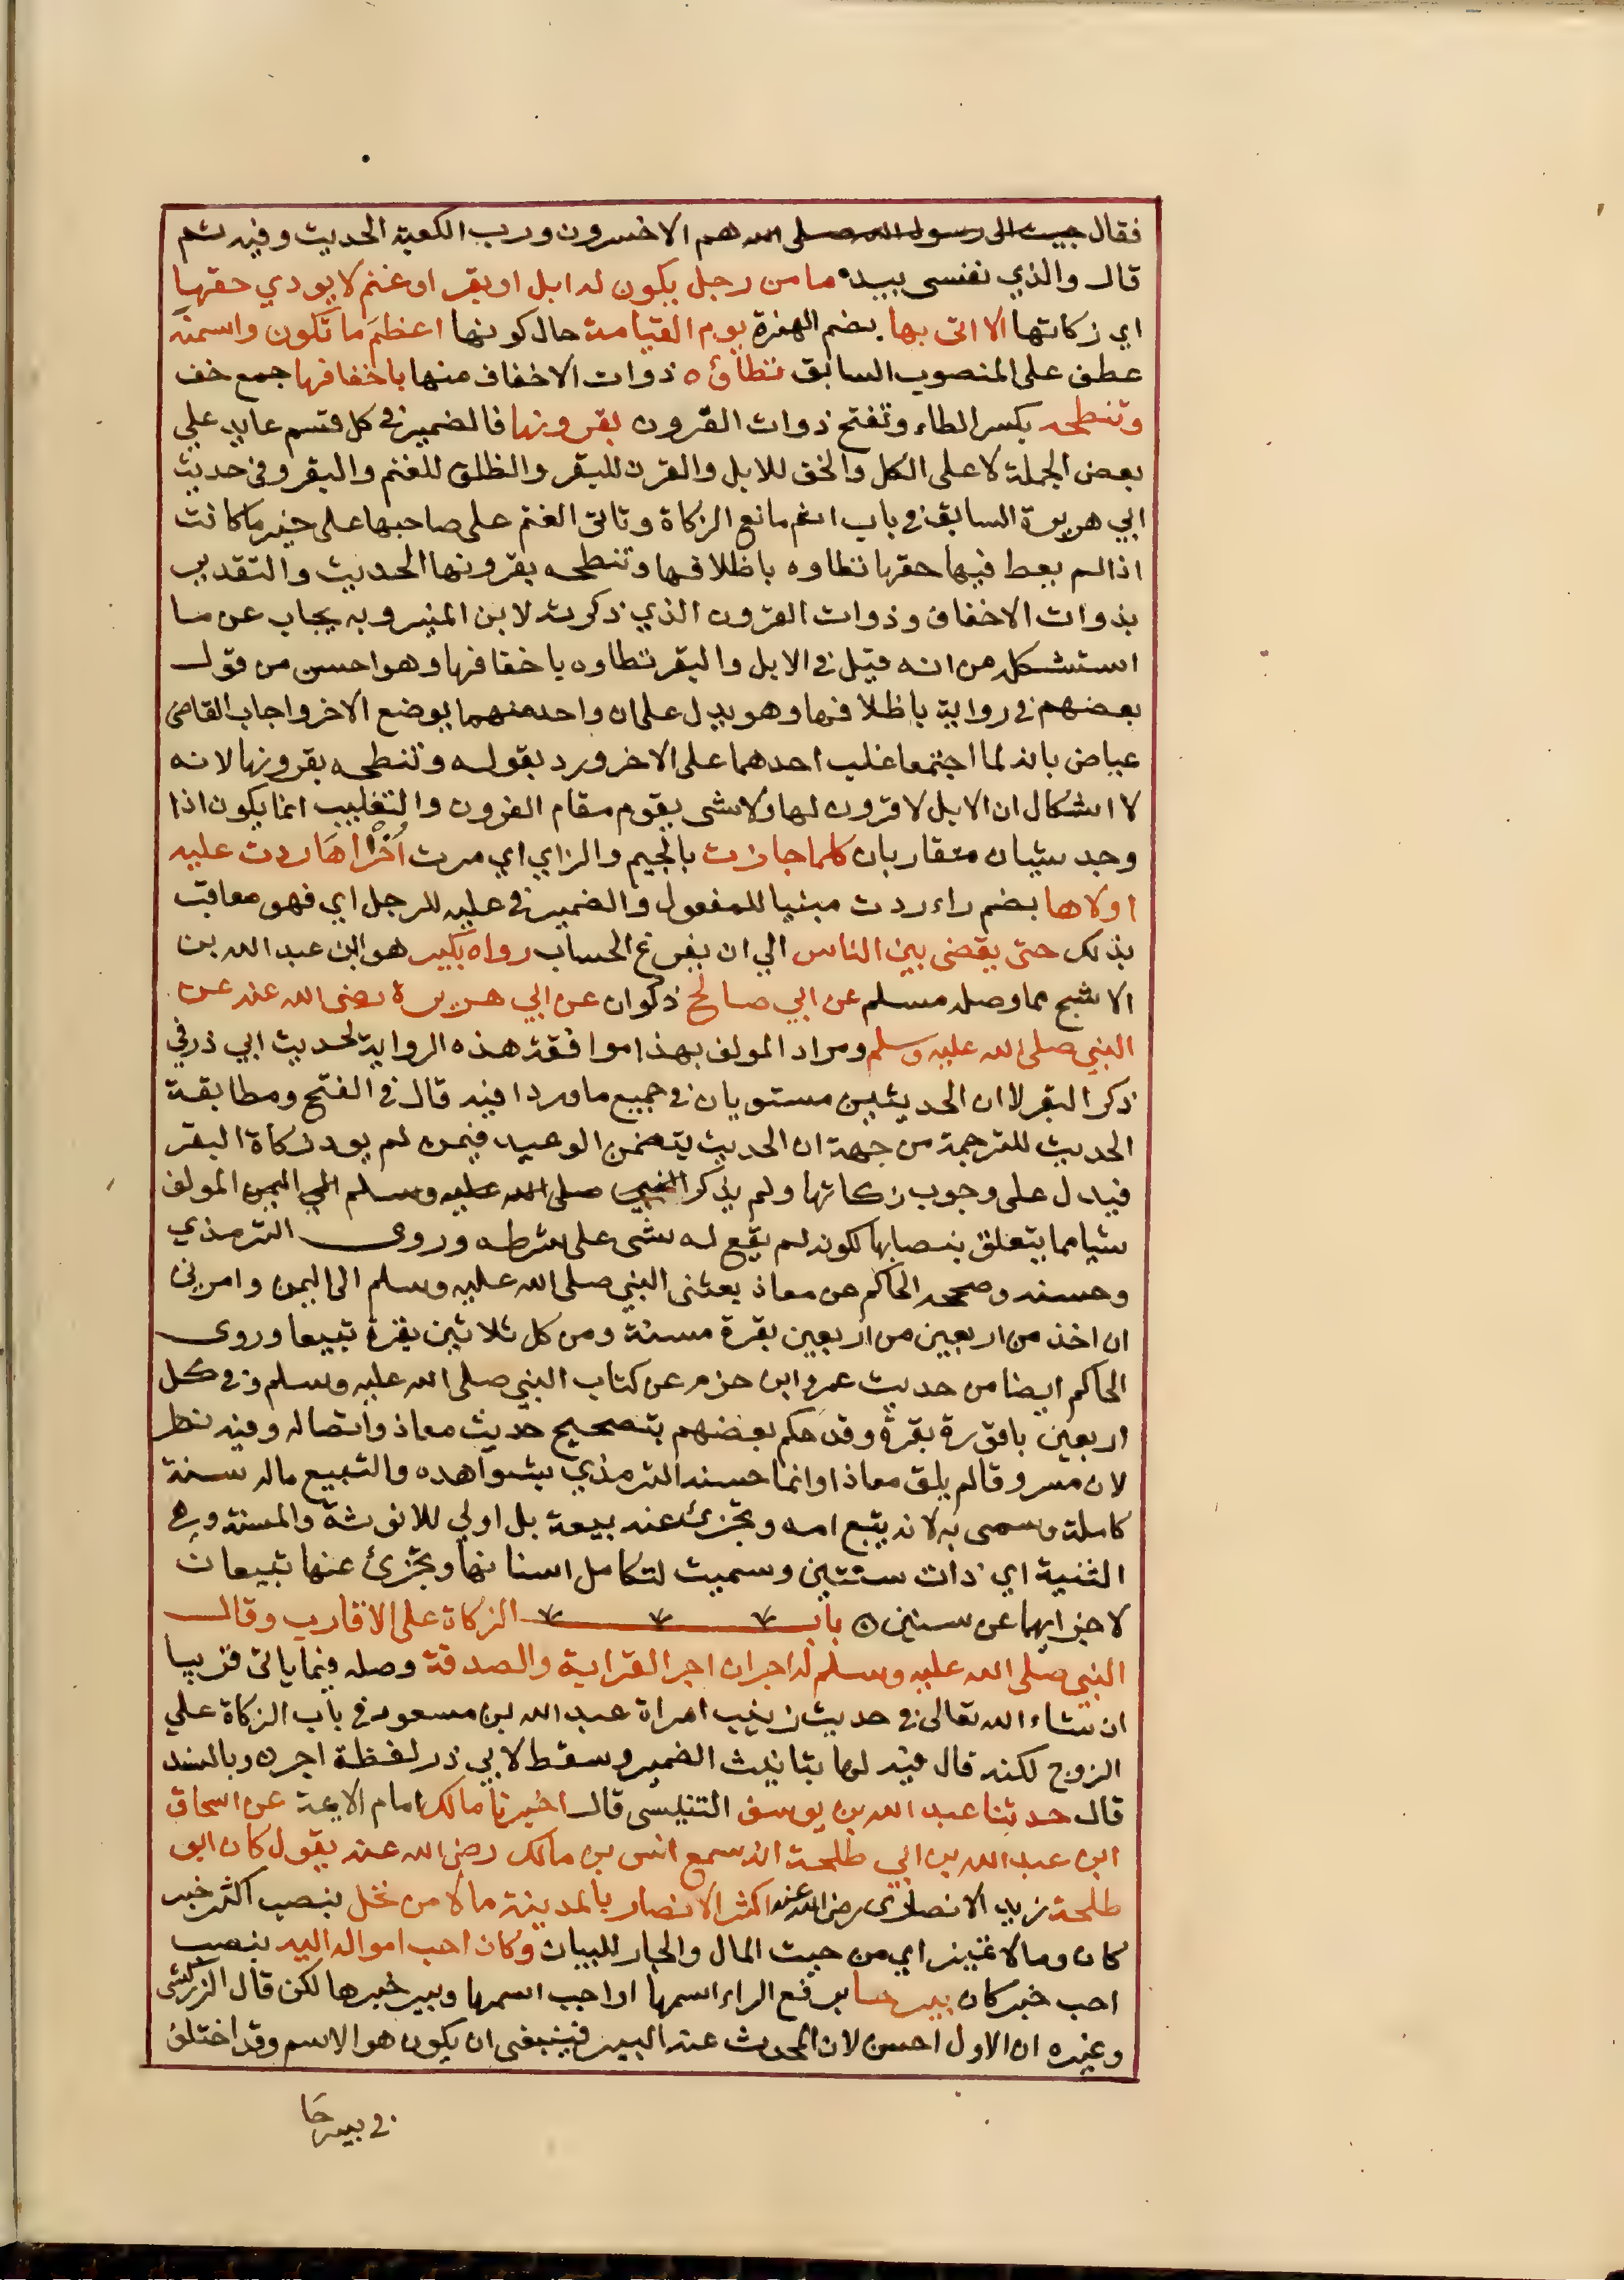 فقال جيت الى رسول الله صلى الله هم الاخسرون ورب الكعبة الحديث وفيه ثم
قال والذي نفسى بيده ما من رجل يكون له ابل او بقر او غنم لا يودي حقها
اي زكاتها الا اتى بها بضم الهمزة يوم القيامة حال كونها اعظمَ ما تكون واسمنه
عطف على المنصوب السابق تطاؤه ذوات الاخفاف منها باخفافها جمع خف
وتنطحه بكسر الطاء وتفتح ذوات القرون بقرونها فالضمير في كل قسم عايد علي
بعض الجملة لا على الكل والخف للابل والقرن للبقر والظلف للغنم والبقر وفي حديث
ابي هريرة السابق في باب اثم مانع الزكاة وتاتى الغنم على صاحبها على خير ما كانت
اذا لم يعط فيها حقها تطاوه باظلافها وتنطحه بقرونها الحديث والتقدير
بذوات الاخفاف وذوات القرون الذي ذكرته لابن المنير وبه يجاب عن ما
استشكل من انه قيل في الابل والبقر تطاوه باخفافها وهو احسن من قول
بعضهم في رواية باظلافها وهو يدل على ان واحد منهما يوضع الاخر واجاب القاضي
عياض بانه لما اجتمعا غلب احدهما على الاخر ورد بقوله وتنطحه بقرونها لانه
لا اشكال ان الابل لا قرون لها ولا شى يقوم مقام القرون والتغليب انما يكون اذا
وجد شيان متقاربان كلما جازت بالجيم والزاي اي مرت اُخْراها رُدت عليه
اولاها بضم راء ردت مبنيا للمفعول والضمير في عليه للرجل اي فهو معاقب
بذلك حتى يقضى بين الناس الي ان يفرغ الحساب رواه بكير هو ابن عبد الله بن
الاشج مما وصله مسلم عن ابي صالح ذكوان عن ابي هريرة رضى الله عنه عن
النبي صلى الله عليه وسلم ومراد المولف بهذا موافقة هذه الرواية لحديث ابي ذر في
ذكر البقر لا ان الحديثين مستويان في جميع ما وردا فيه قال في الفتح ومطابقة
الحديث للترجمة من جهة ان الحديث يتضمن الوعيد فيمن لم يود زكاة البقر
فيدل على وجوب زكاتها ولم يذكر النبي صلى الله عليه وسلم الى اليمن المولف
شيا مما يتعلق بنصابها لكونه لم يقع له شى على شرطه وروى الترمذي
وحسنه وصححه الحاكم عن معاذ بعثنى النبي صلى الله عليه وسلم الى اليمن وامرنى
ان اخذ من اربعين من اربعين بقرة مسنة ومن كل ثلاثين بقرة تبيعا وروى
الحاكم ايضا من حديث عمرو ابن حزم عن كتاب النبي صلى الله عليه وسلم وفي كل
اربعين باقورة بقرة وقد حكم بعضهم بتصحيح حديث معاذ واتصاله وفيه نظر
لان مسروقا لم يلق معاذا وانما حسنه الترمذي بشواهده والتبيع ماله سنة
كاملة وسمى به لانه يتبع امه وتجزئ عنه بيعة بل اولي للانوثة والمسنة وهي
الثنية اي ذات سنتين وسميت لتكامل اسنانها وتجزئ عنها تبيعان
لاجزايهما عن سنين ٥ باب الزكاة على الاقارب وقال
النبي صلى الله عليه وسلم له اجران اجر القرابة والصدقة وصله فيما ياتى قريبا
ان شاء الله تعالى في حديث زينب امراة عبد الله بن مسعود في باب الزكاة علي
الزوج لكنه قال فيه لها بتانيث الضمير وسقط لابي ذر لفظة اجر ٥ وبالسند
قال حدثنا عبد الله بن يوسف التنيسى قال اخبرنا مالك امام الايمة عن اسحاق
ابن عبد الله بن ابي طلحة انه سمع انس بن مالك رضى الله عنه يقول كان ابو
طلحة زيد الانصارى رضى الله عنه اكثر الانصار بالمدينة مالا من نخل بنصب اكثر خبر
كان ومالا تمييز اي من حيث المال والجار للبيان وكان احب امواله اليه بنصب
احب خبر كان بيرحا برفع الراء اسمها او احب اسمها وبير خبرها لكن قال الزركشى
وغيره ان الاول احسن لان المحدث عنه البير فينبغى ان يكون هو الاسم وقد اختلف
في بيرحَا